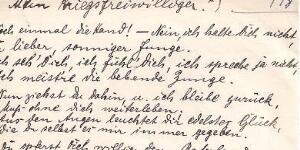 Mein Kriegsfreiwilliger.)
Noch einmal die Hand! – Nein, ich halte Dich nicht,
Du lieber, sonniger Junge.
Ich seh' Dich, ich fühle Dich, ich spreche ja nicht,
Ich meistre die bebende Zunge.
Nun ziehst du dahin, u. ich bleibe zurück,
Muß ohne dich weiterleben.
Aus den Augen leuchtet dir edelster Glück,
die du selbst es mir immer gegeben.
Du